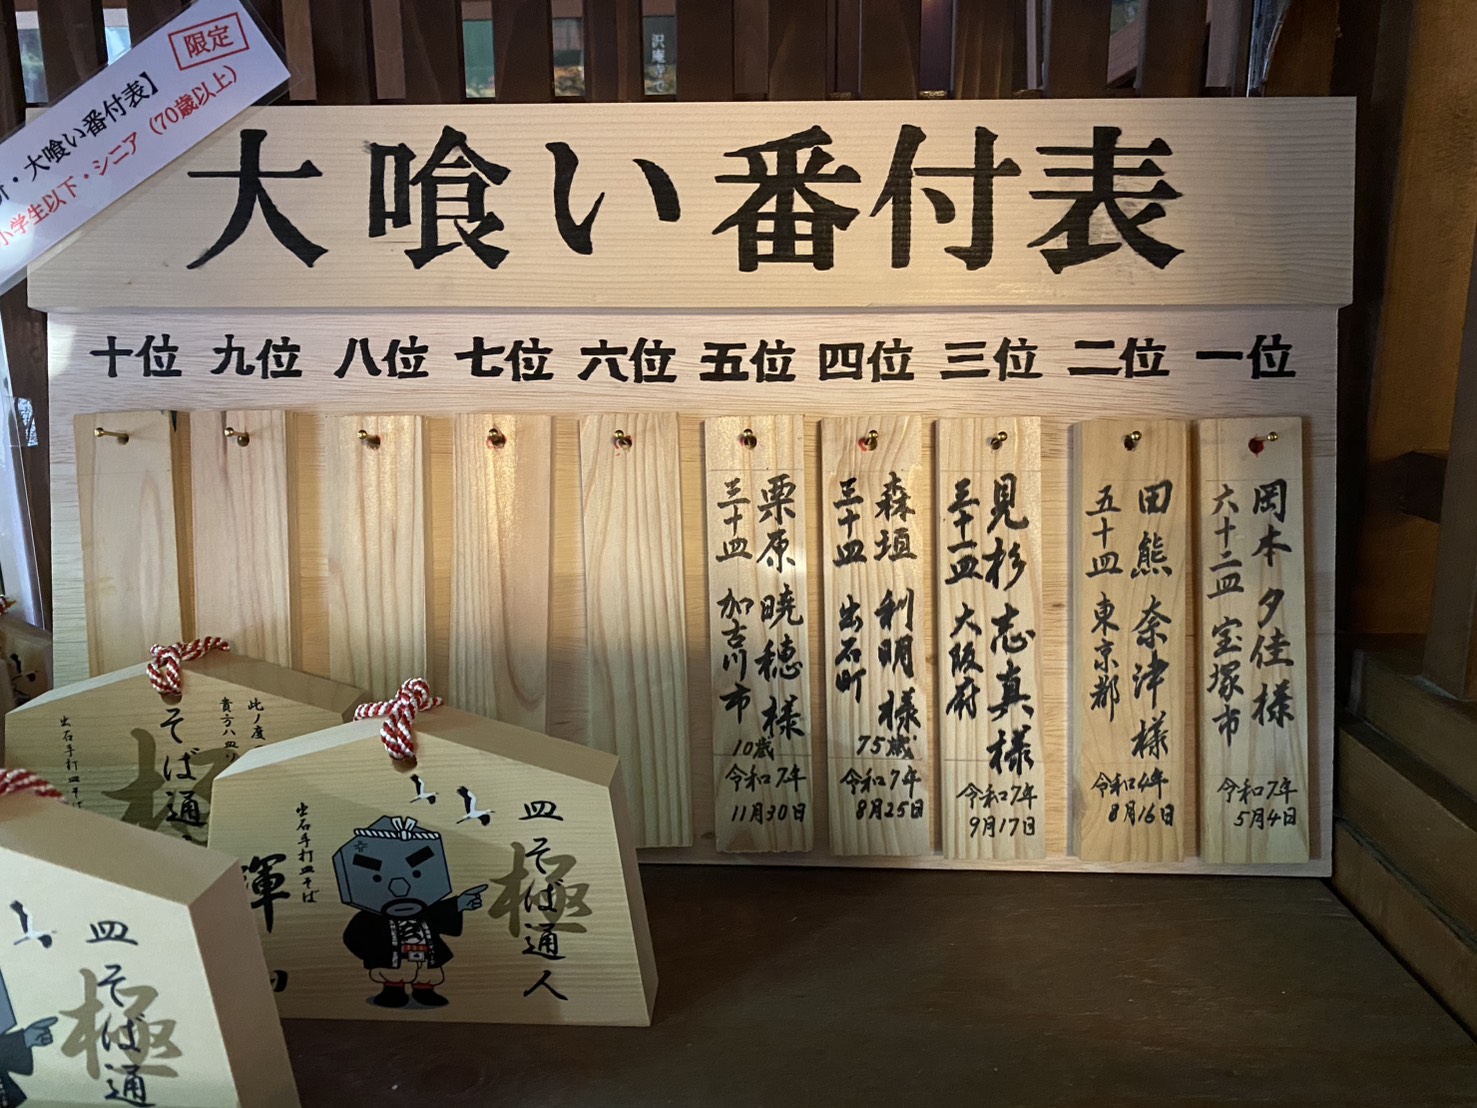 限定
・大喰い番付表】
小学生以下・シニア（70歳以上）
沢庵寺で
大喰い番付表
一位
二位
三位
四位
五位
六位
七位
八位
九位
十位
岡本 夕佳様
六十二皿 宝塚市
令和7年
5月4日
田熊 奈津様
五十皿 東京都
令和4年
8月16日
見杉 志真様
三十一皿 大阪府
令和7年
9月17日
森垣 利明様
三十皿 出石町
75歳
令和7年
8月25日
栗原 暁穂様
三十皿 加古川市
10歳
令和7年
11月30日
此ノ度
貴方ハ皿ソ
そば通
極
出石手打皿そば
皿そば通人
極
出石手打皿そば
輝
皿そば通
極